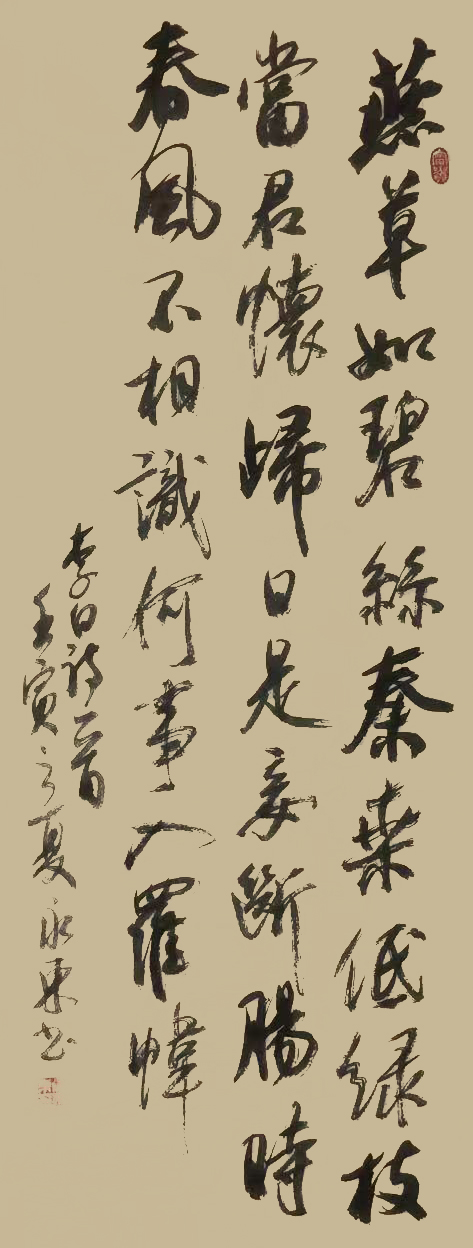 燕草如碧絲秦桒低緑枝
當君懷歸日是妾斷腸時
春風不相識何事入羅幃
李白詩一首
壬寅之夏永東书